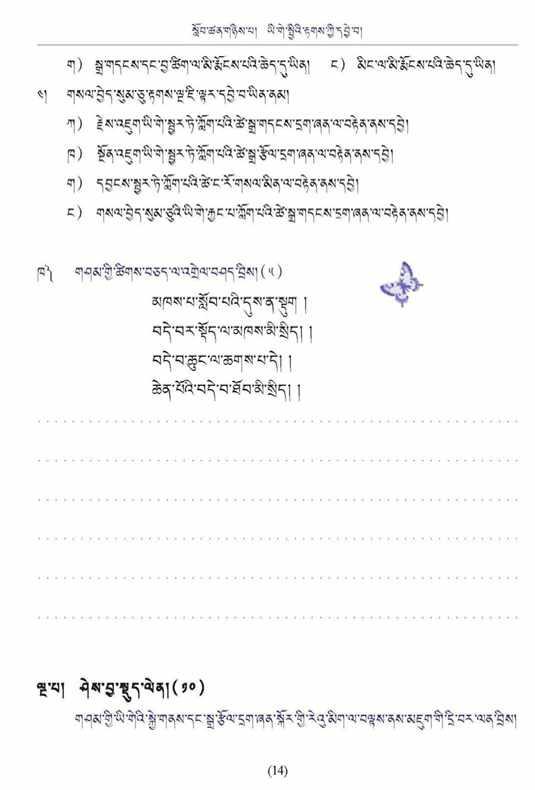 སློབ་ཚན་གཉིས་པ། ཡི་གེ་སྤྱིའི་རྟགས་ཀྱི་དབྱེ་བ།
ག) སྒྲ་གདངས་དང་བྱ་ཚིག་ལ་མི་རྨོངས་པའི་ཆེད་དུ་ཡིན། ང) མིང་ལ་མི་རྨོངས་པའི་ཆེད་དུ་ཡིན།
༤། གསལ་བྱེད་སུམ་ཅུ་རྟགས་ལྔ་ཇི་ལྟར་དབྱེ་བ་ཡིན་ནམ།
ཀ) རྗེས་འཇུག་ཡི་གེ་སྦྱར་ཏེ་ཀློག་པའི་ཚེ་སྒྲ་གདངས་དྲག་ཞན་ལ་བརྟེན་ནས་དབྱེ།
ཁ) སྔོན་འཇུག་ཡི་གེ་སྦྱར་ཏེ་ཀློག་པའི་ཚེ་སྒྲ་རྩོལ་དྲག་ཞན་ལ་བརྟེན་ནས་དབྱེ།
ག) དབྱངས་སྦྱར་ཏེ་ཀློག་པའི་ཚེ་ང་རོ་གསལ་མིན་ལ་བརྟེན་ནས་དབྱེ།
ང) གསལ་བྱེད་སུམ་ཅུའི་ཡི་གེ་རྐྱང་པ་ཀློག་པའི་ཚེ་སྒྲ་གདངས་དྲག་ཞན་ལ་བརྟེན་ནས་དབྱེ།
ཁ༽ གཤམ་གྱི་ཚིགས་བཅད་ལ་འགྲེལ་བཤད་བྲིས། (༥)
མཁས་པ་སློབ་པའི་དུས་ན་སྡུག །
བདེ་བར་སྡོད་ལ་མཁས་མི་སྲིད། །
བདེ་བ་ཆུང་ལ་ཆགས་པ་དེ། །
ཆེན་པོའི་བདེ་བ་ཐོབ་མི་སྲིད། །
ལྔ་པ། ཤེས་བྱ་སྡུད་ལེན། (༡༠)
གཤམ་གྱི་ཡི་གེའི་སྐྱེ་གནས་དང་སྒྲ་རྩོལ་དྲག་ཞན་སྐོར་གྱི་རེའུ་མིག་ལ་བལྟས་ནས་མཇུག་གི་དྲི་བར་ལན་བྲིས།
(14)